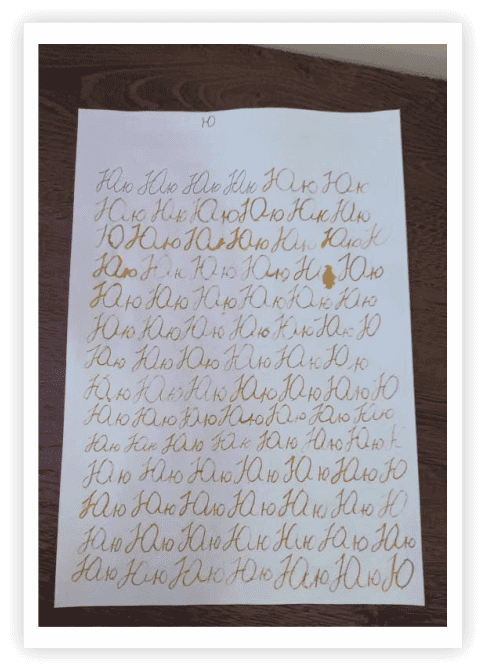 Ю
Юю Юю Юю Юю Юю Юю
Юю Юю Юю Юю Юю Юю
Ю Юю Юю Юю Юю Юю Ю
Юю Юю Юю Юю Ю Юю
Юю Юю Юю Юю Юю Юю
Юю Юю Юю Юю Юю Юю Ю
Юю Юю Юю Юю Юю Юю
Юю Юю Юю Юю Юю Юю Ю
Юю Юю Юю Юю Юю Юю Юю
Юю Юю Юю Юю Юю Юю Юю
Юю Юю Юю Юю Юю Юю Ю
Юю Юю Юю Юю Юю Юю Ю
Юю Юю Юю Юю Юю Юю Юю
Юю Юю Юю Юю Юю Юю Ю